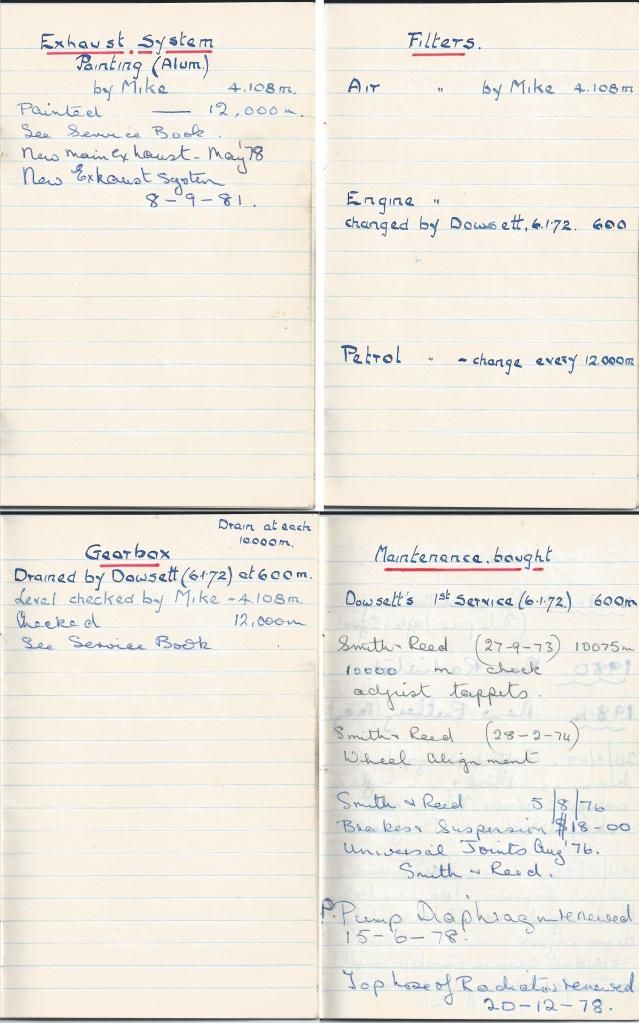 Exhaust System
Painting (Alum.)
by Mike 4.108m.
Painted — 12,000m.
See Service Book.
New main exhaust - May '78
New Exhaust System
8-9-81.
Filters.
Air " by Mike 4.108m
Engine "
changed by Dowsett, 6.1.72. 600
Petrol " - change every 12.000m
Drain at each
10000m.
Gearbox
Drained by Dowsett (6.1.72) at 600m.
Level checked by Mike - 4.108m.
Checked 12,000m
See Service Book
Maintenance. bought
Dowsett's 1st Service (6.1.72) 600m
Smith & Reed (27-9-73) 10075m
10000 m check
adjust tappets.
Smith & Reed (28-2-74)
Wheel Alignment
Smith & Reed 5/8/76
Brakes & Suspension $18-00
Universal Joints Aug '76.
Smith & Reed.
P. Pump Diaphragm renewed
15-6-78.
Top hose of Radiator renewed
20-12-78.